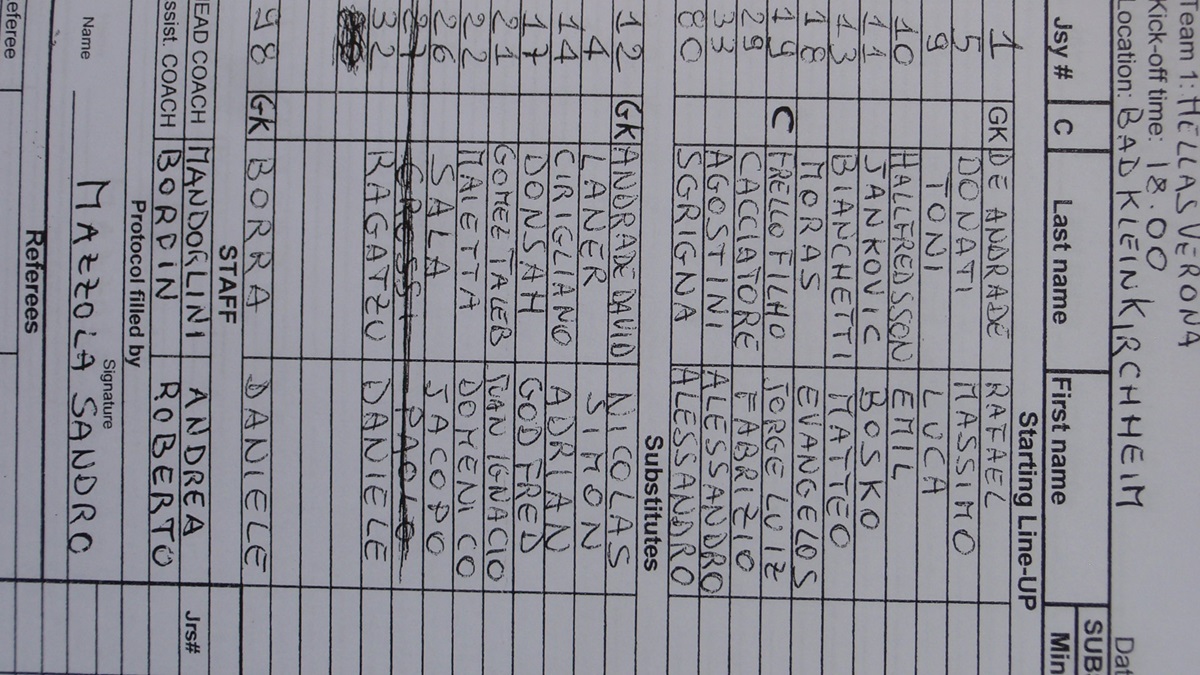 Team 1: HELLAS VERONA
Kick-off time: 18.00
Location: BAD KLEINKIRCHHEIM
Starting Line-UP SUB
Jsy # C Last name First name Min
1 GK DE ANDRADE RAFAEL
5 DONATI MASSIMO
9 TONI LUCA
10 HALLFREDSSON EMIL
11 JANKOVIC BOSKO
13 BIANCHETTI MATTEO
18 MORAS EVANGELOS
19 C FRELLO FILHO JORGE LUIZ
29 CACCIATORE FABRIZIO
33 AGOSTINI ALESSANDRO
80 SGRIGNA ALESSANDRO
Substitutes
12 GK ANDRADE DAVID NICOLAS
4 LANER SIMON
14 CIRIGLIANO ADRIAN
17 DONSAH GODFRED
21 GOMEZ TALEB JUAN IGNACIO
22 MAIETTA DOMENICO
26 SALA JACOPO
GROSSI PAOLO
32 RAGATZU DANIELE
98 GK BORRA DANIELE
STAFF
HEAD COACH MANDORLINI ANDREA Jrs#
ssist. COACH BORDIN ROBERTO
Protocol filled by
Name Signature
MAZZOLA SANDRO
Referees
eferee